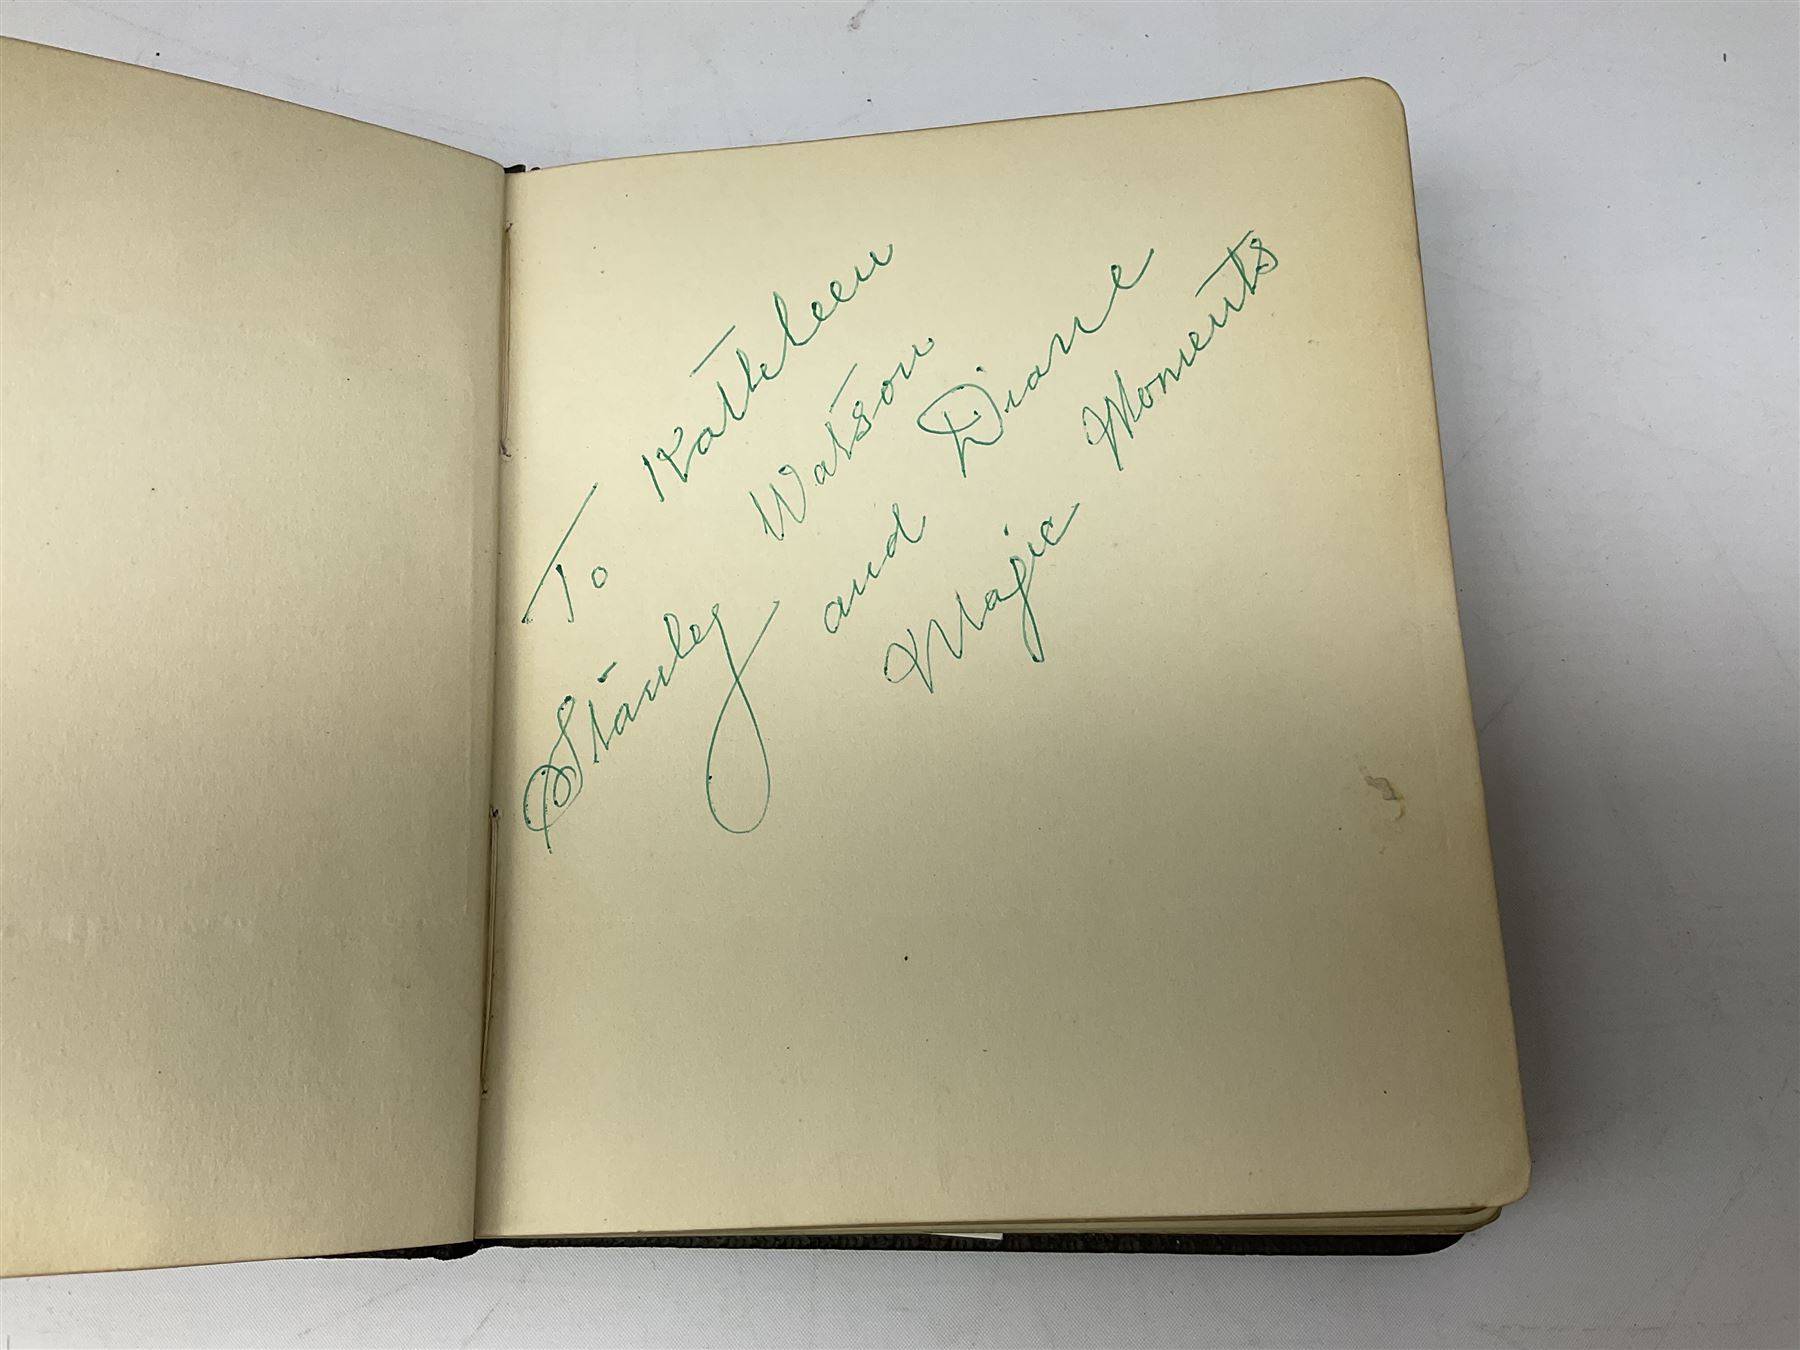 To Kathleen
Stanley Watson
and Diane
Magic Moments